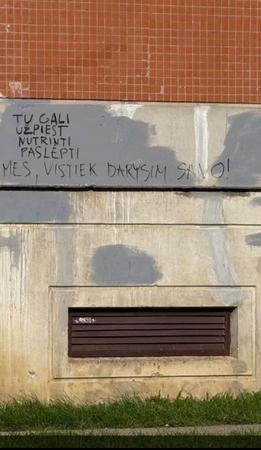 TU GALI
UŽPIEST
NUTRINTI
PASLĖPTI
MES, VISTIEK DARYSIM SAVO!